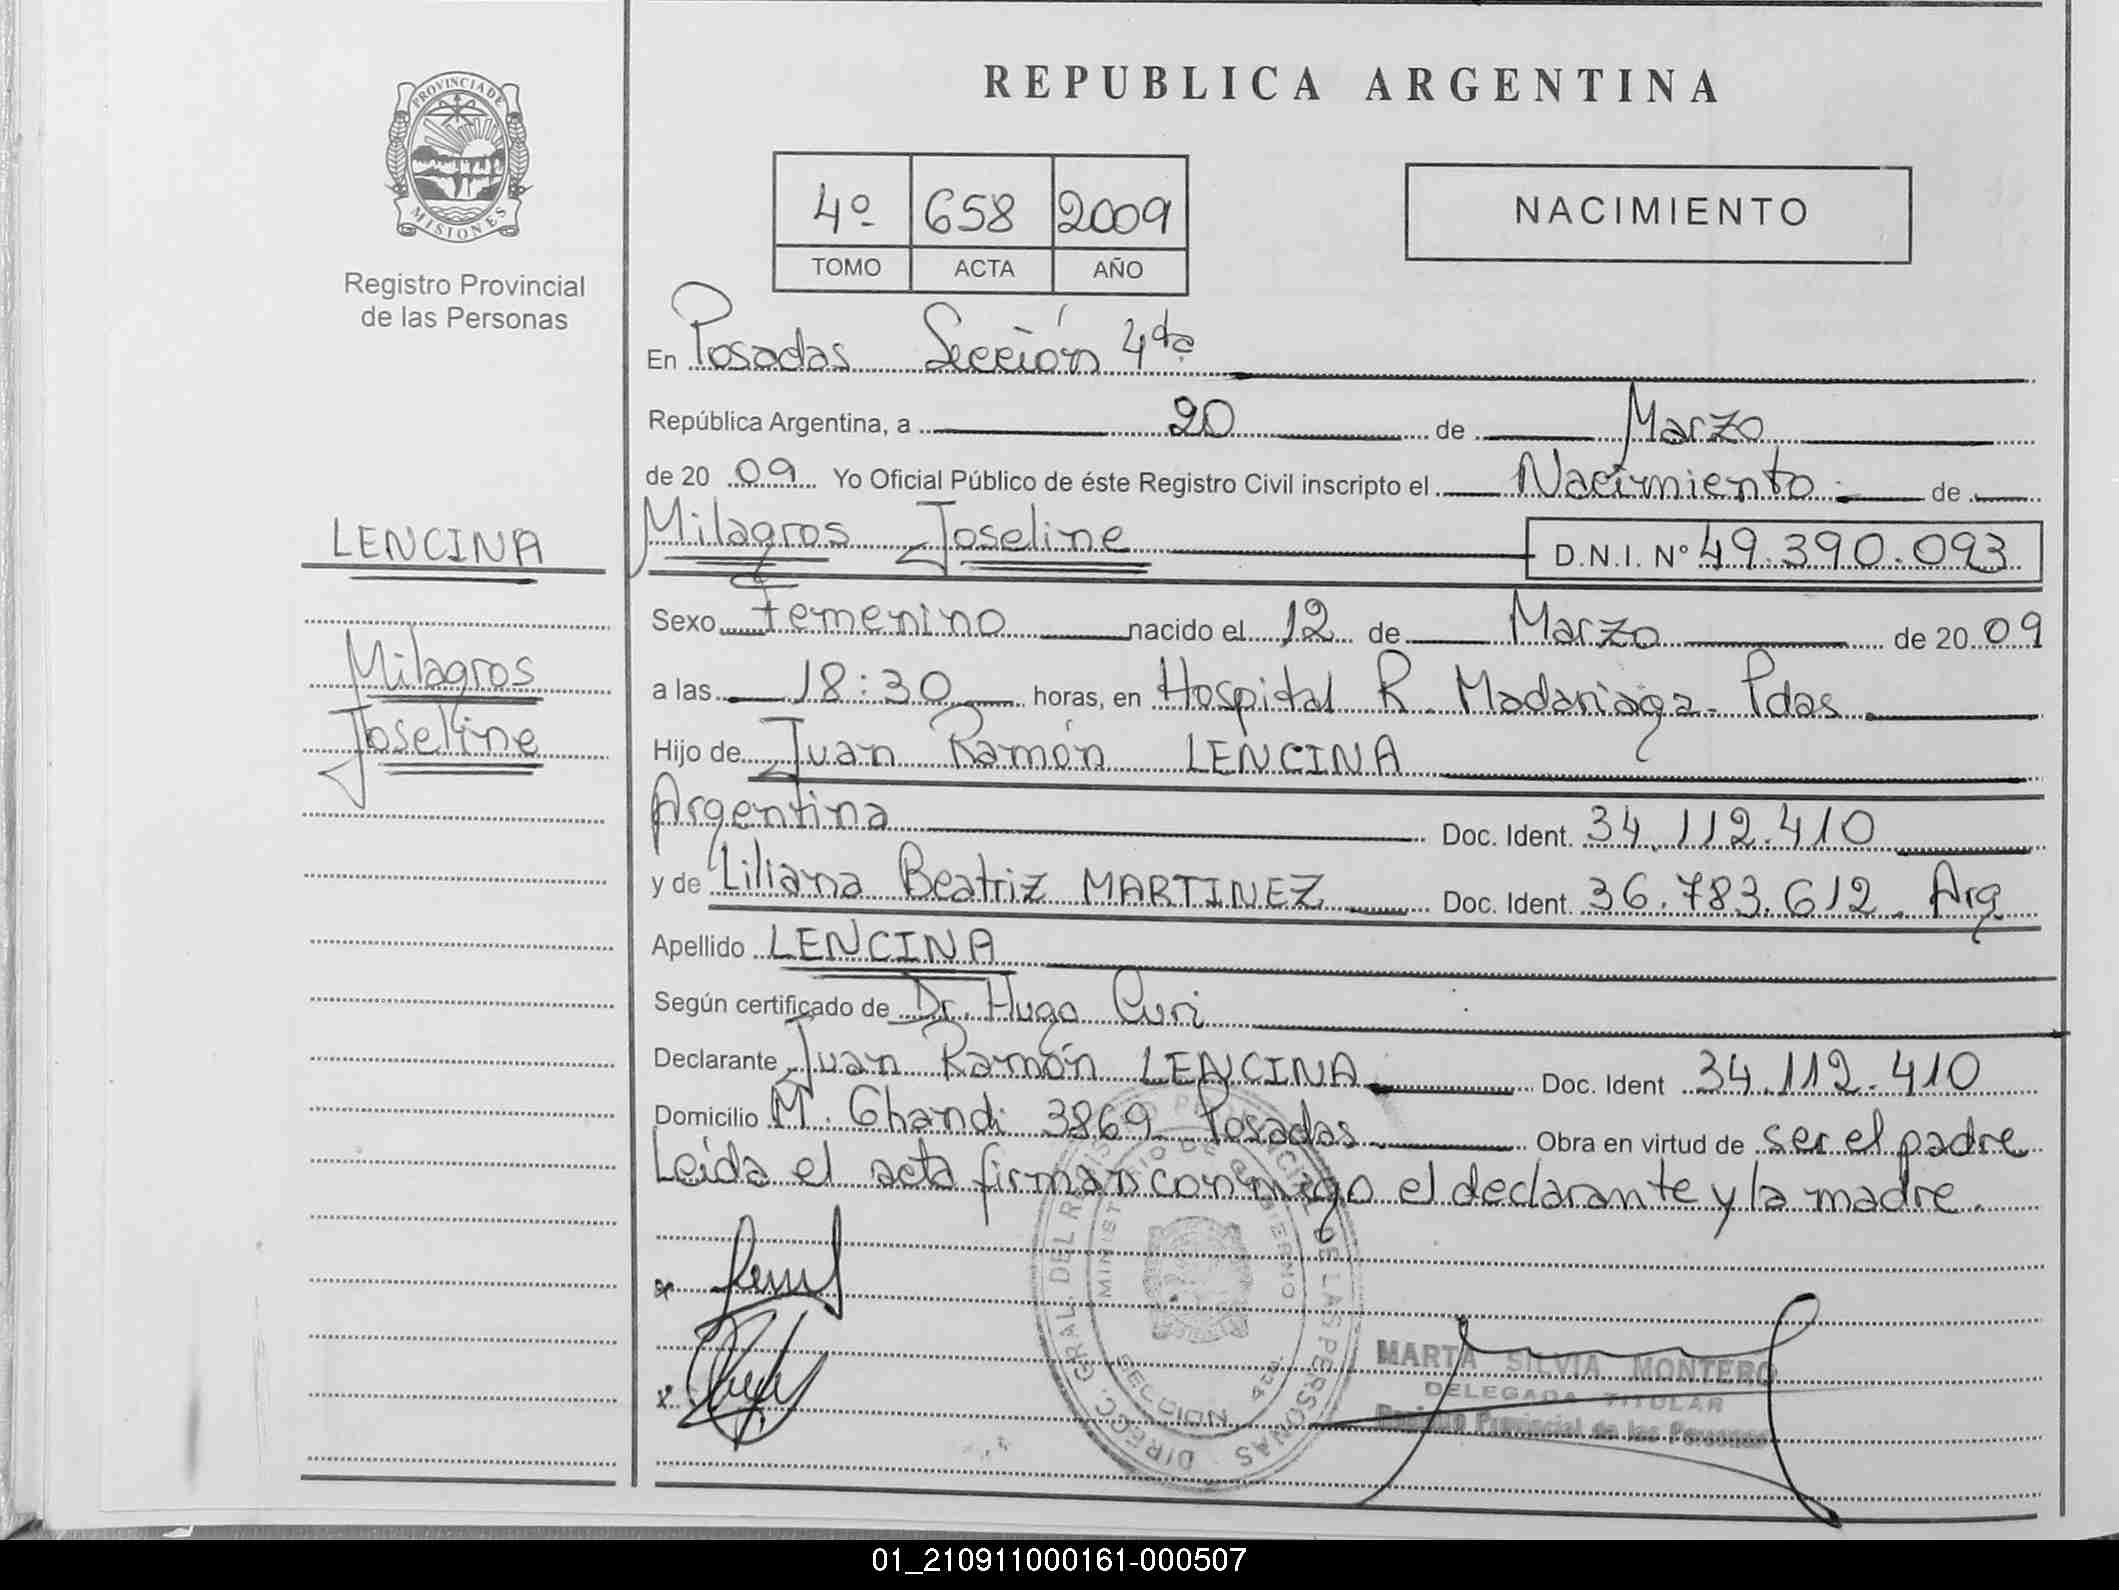 PROVINCIA DE
MISIONES
Registro Provincial
de las Personas
LENCINA
Milagros
Joseline
REPUBLICA ARGENTINA
4º 658 2009
TOMO ACTA AÑO
NACIMIENTO
En Posadas Sección 4ta
República Argentina, a 20 de Marzo
de 20 09 Yo Oficial Público de éste Registro Civil inscripto el Nacimiento de
Milagros Joseline D.N.I. Nº 49.390.093
Sexo Femenino nacido el 12 de Marzo de 20 09
a las 18:30 horas, en Hospital R. Madariaga - Pdas.
Hijo de Juan Ramón LENCINA
Argentina Doc. Ident. 34.112.410
y de Liliana Beatriz MARTINEZ Doc. Ident. 36.783.612. Arg
Apellido LENCINA
Según certificado de Dr. Hugo Curi
Declarante Juan Ramón LENCINA Doc. Ident 34.112.410
Domicilio M. Ghandi 3869 Posadas Obra en virtud de ser el padre
Leída el acta firman conmigo el declarante y la madre.
DIRECC. GRAL. DEL REGISTRO PROVINCIAL DE LAS PERSONAS
MINISTERIO DE GOBIERNO
SECCION 4ta.
MARTA SILVIA MONTERO
DELEGADA TITULAR
Registro Provincial de las Personas
01_210911000161-000507